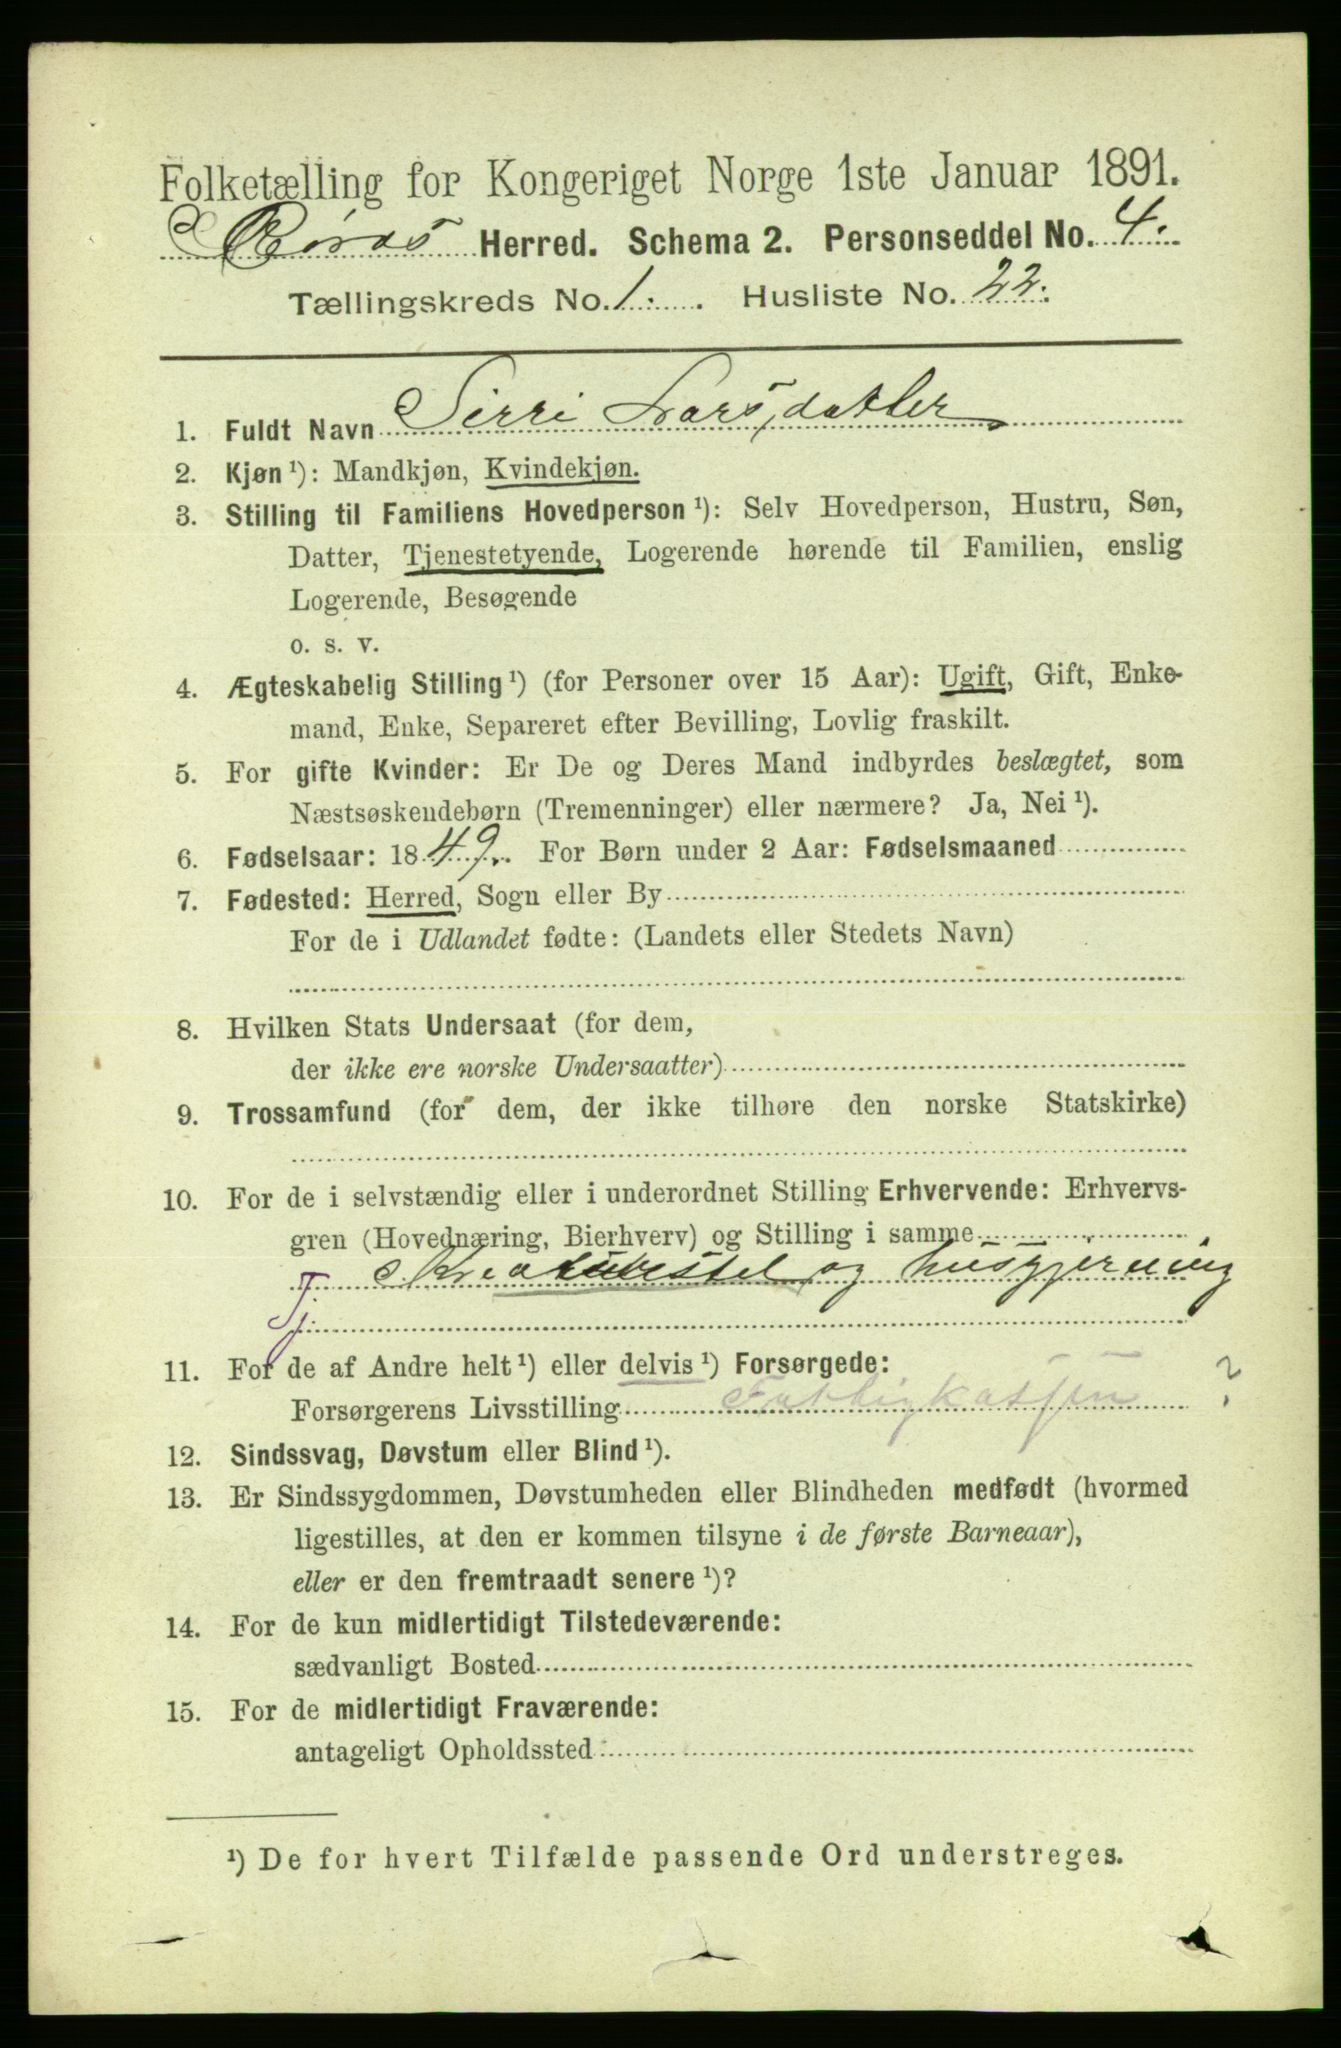 Folketælling for Kongeriget Norge 1ste Januar 1891.
Røros Herred. Schema 2. Personseddel No. 4.
Tællingskreds No. 1. Husliste No. 22.
1. Fuldt Navn Sirri Larsdatter
2. Kjøn ¹): Mandkjøn, Kvindekjøn.
3. Stilling til Familiens Hovedperson ¹): Selv Hovedperson, Hustru, Søn,
Datter, Tjenestetyende, Logerende hørende til Familien, enslig
Logerende, Besøgende
o. s. v.
4. Ægteskabelig Stilling ¹) (for Personer over 15 Aar): Ugift, Gift, Enke-
mand, Enke, Separeret efter Bevilling, Lovlig fraskilt.
5. For gifte Kvinder: Er De og Deres Mand indbyrdes beslægtet, som
Næstsøskendebørn (Tremenninger) eller nærmere? Ja, Nei ¹).
6. Fødselsaar: 1849. For Børn under 2 Aar: Fødselsmaaned
7. Fødested: Herred, Sogn eller By
For de i Udlandet fødte: (Landets eller Stedets Navn)
8. Hvilken Stats Undersaat (for dem,
der ikke ere norske Undersaatter)
9. Trossamfund (for dem, der ikke tilhøre den norske Statskirke)
10. For de i selvstændig eller i underordnet Stilling Erhvervende: Erhvervs-
gren (Hovednæring, Bierhverv) og Stilling i samme
Kreaturstel og husgjerning
Tj.
11. For de af Andre helt ¹) eller delvis ¹) Forsørgede:
Forsørgerens Livsstilling Fattigkassen ?
12. Sindssvag, Døvstum eller Blind ¹).
13. Er Sindssygdommen, Døvstumheden eller Blindheden medfødt (hvormed
ligestilles, at den er kommen tilsyne i de første Barneaar),
eller er den fremtraadt senere ¹)?
14. For de kun midlertidigt Tilstedeværende:
sædvanligt Bosted
15. For de midlertidigt Fraværende:
antageligt Opholdssted
¹) De for hvert Tilfælde passende Ord understreges.